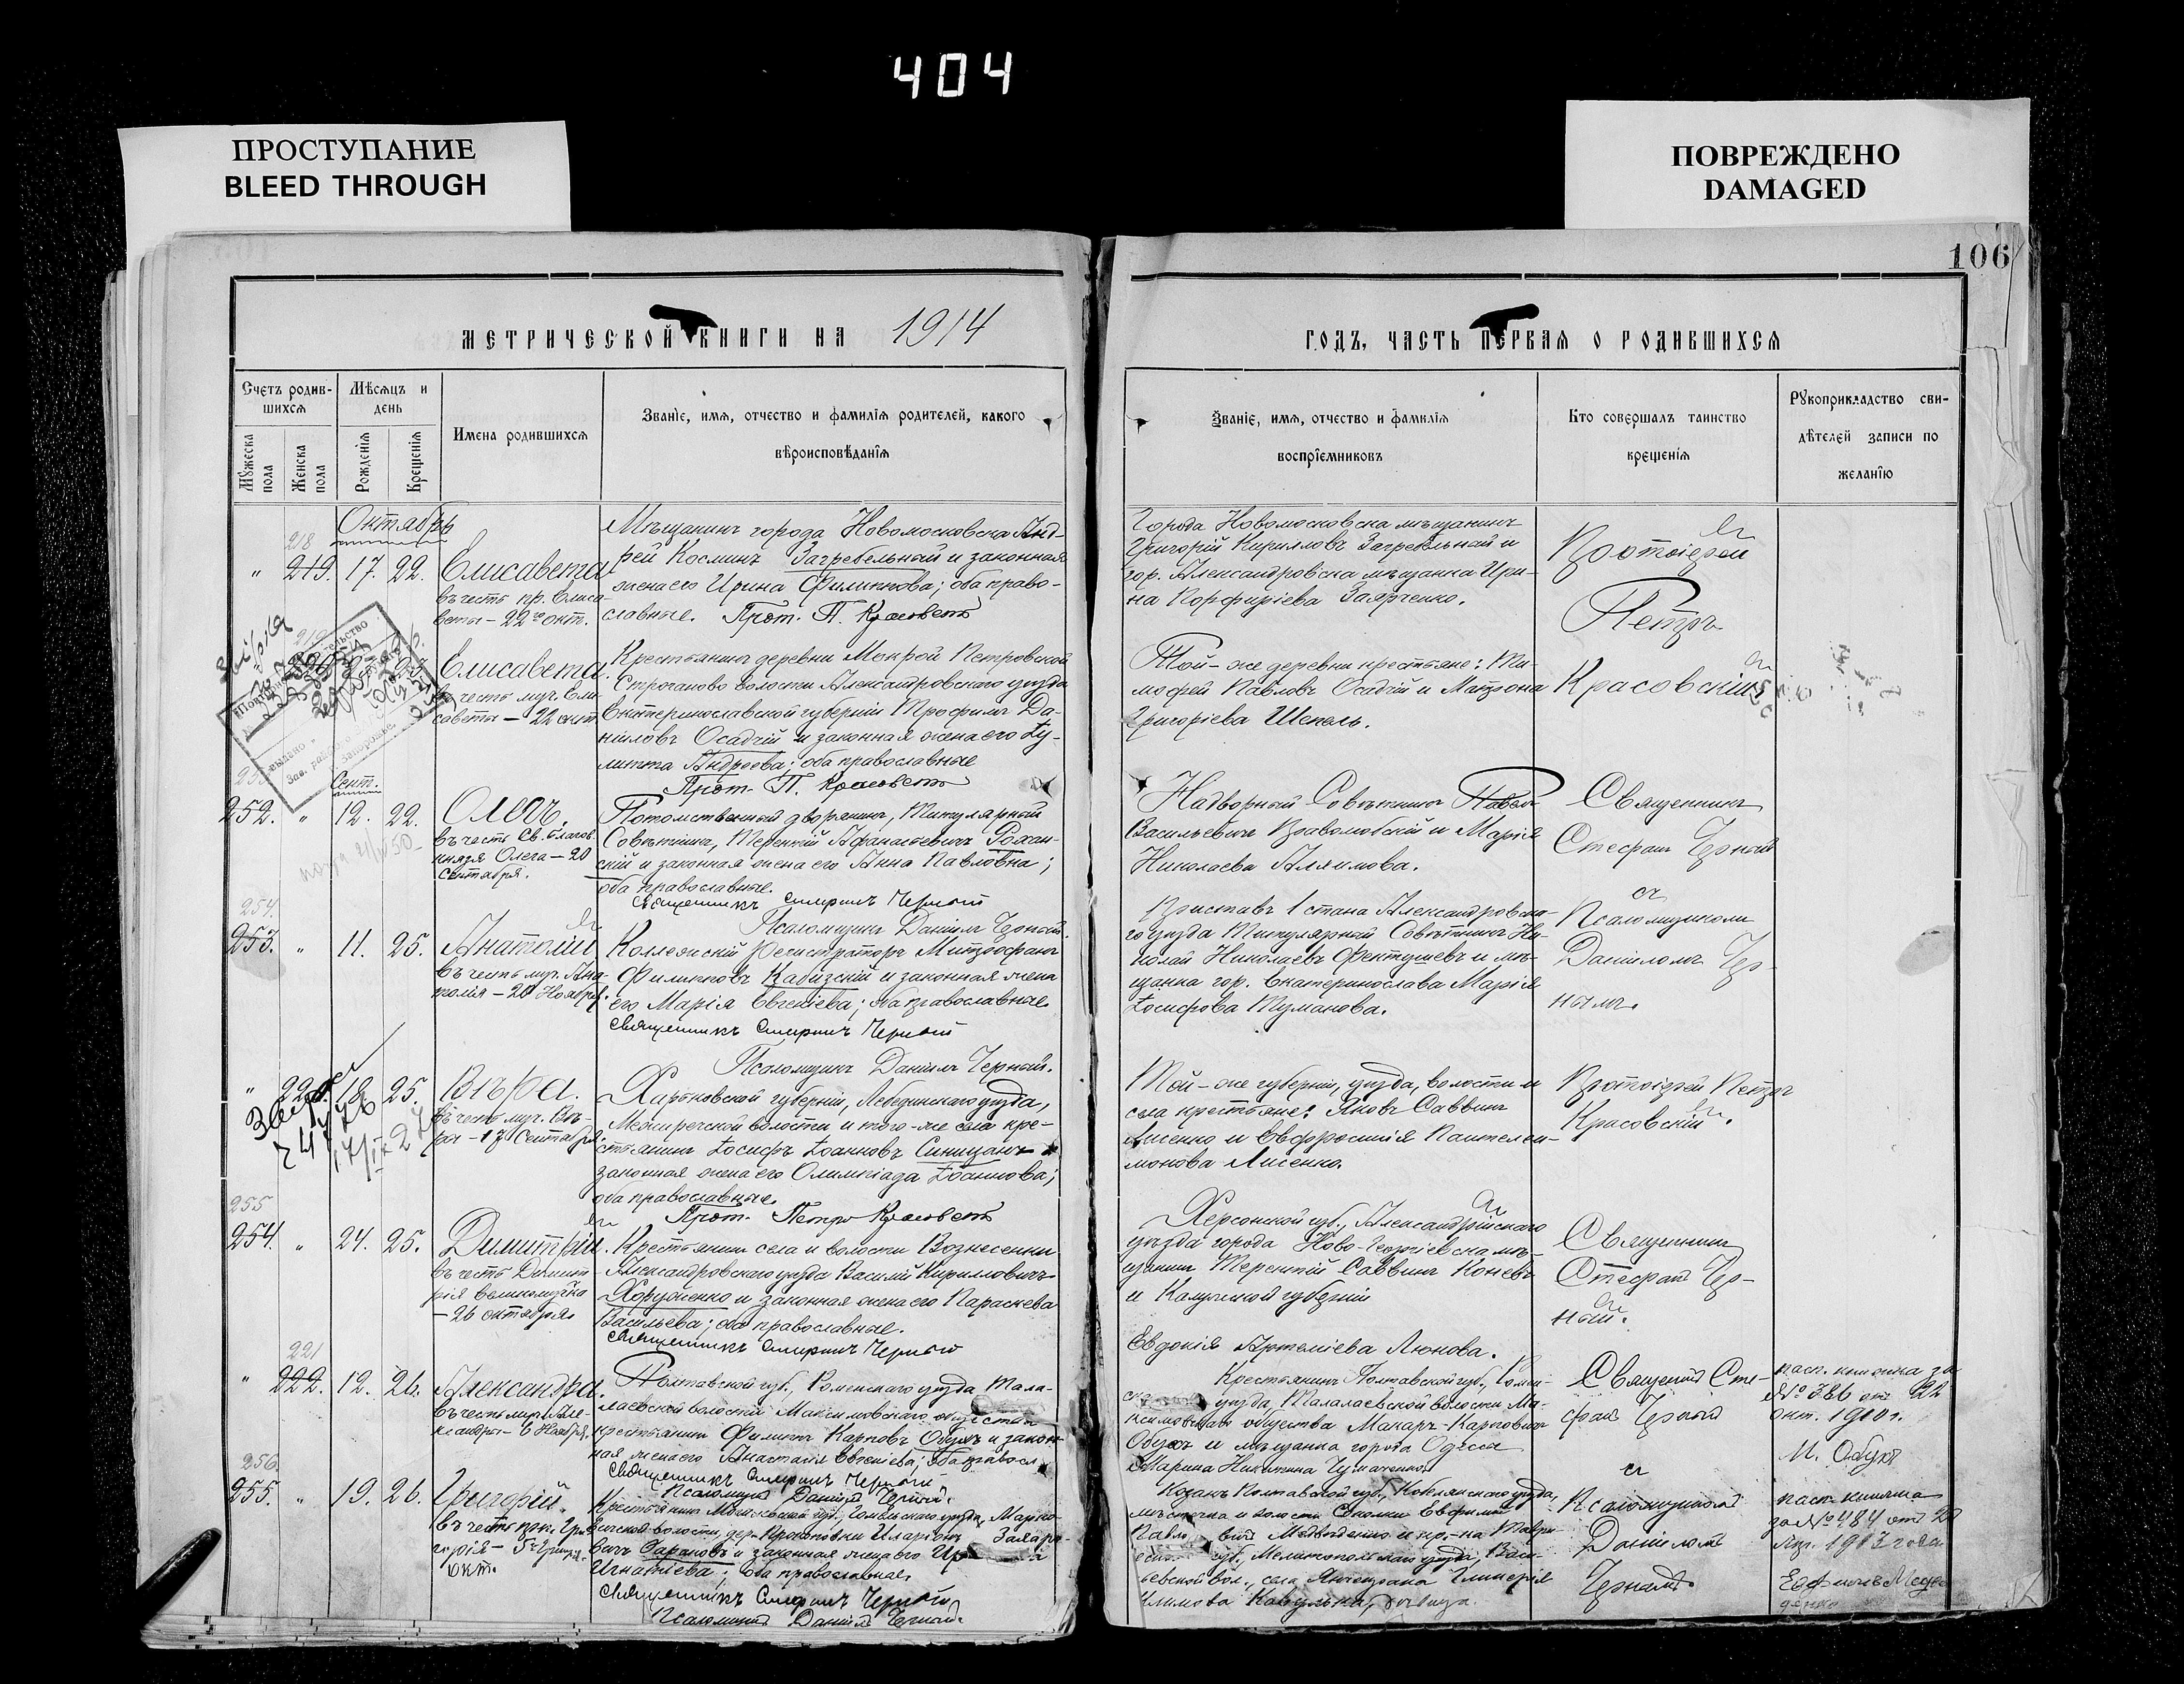 404
ПРОСТУПАНИЕ
BLEED THROUGH
ПОВРЕЖДЕНО
DAMAGED
106
МЕТРИЧЕСКОЙ КНИГИ НА 1914
Счетъ родив-
шихся
Мѣсяцъ и
день
Имена родившихся
Званіе, имя, отчество и фамилія родителей, какого
вѣроисповѣданія
Мужеска
пола
Женска
пола
Рожденія
Крещенія
Октябрь
218
" 219. 17. 22. Елисавета
въ честь пр. Елиса-
веты - 22го окт.
Мѣщанинъ города Новомосковска Анд-
рей Косминъ Загребельный и законная
жена его Ирина Филиппова; оба право-
славные. Прот. П. Красовскій
23. Елисавета.
въ честь муч. Ели-
саветы - 22 окт.
Крестьянинъ деревни Мокрой Петровской
Строганово волости Александровскаго уѣзда
Екатеринославской губерніи Трофимъ Да-
ніиловъ Осадчій и законная жена его Іу-
литта Андреева; оба православные
Прот. П. Красовскій
Сент.
252. " 12. 22. Олегъ.
въ честь Св. благов.
князя Олега - 20
Сентября.
Потомственный дворянинъ, Титулярный
Совѣтникъ, Терентій Афанасьевичъ Рохан-
скій и законная жена его Анна Павловна;
оба православные.
Священникъ Стефанъ Черный
Псаломщикъ Даніилъ Черный.
254.
253. " 11. 25. Анатолій
въ честь муч. Ана-
толія - 20 Ноября.
Коллежскій Регистраторъ Митрофанъ
Филипповъ Кабизскій и законная жена
его Марія Евгеніева; оба православные
Священникъ Стефанъ Черный
Псаломщикъ Даніилъ Черный.
18. 25. Вѣра.
въ честь муч. Вѣ-
ры - 17 Сентября.
Харьковской губерніи, Лебединскаго уѣзда,
Межиречской волости и того-же села кре-
стьянинъ Іосифъ Іоанновъ Синицанъ и
законная жена его Олимпіада Іоаннова;
оба православные.
Прот. Петръ Красовскій
255
254. " 24. 25. Димитрій.
въ честь Димит-
рія великомуч-ка
- 26 октября
Крестьянинъ села и волости Вознесенки
Александровскаго уѣзда Василій Кирилловичъ
Хоруженко и законная жена его Параскева
Васильева; оба православные.
Священникъ Стефанъ Черный
221
" 222. 12. 26. Александра.
въ честь муч. Але-
ксандры - 6 Ноября.
Полтавской губ., Роменскаго уѣзда Тала-
лаевской волости Максимовскаго общества
крестьянинъ Филиппъ Карповъ Обухъ и закон-
ная жена его Анастасія Евгеніева; оба правосл.
Священникъ Стефанъ Черный
Псаломщикъ Даніилъ Черный.
256
255. " 19. 26. Григорій.
въ честь
окт.
Крестьянинъ Могилевской губ., Гомельскаго уѣзда, Марко-
вичской волости, дер.
законная жена его
Игнатіева; оба православные.
Священникъ Стефанъ Черный
Псаломщикъ Даніилъ Черный.
ГОДЪ, ЧАСТЬ ПЕРВАЯ О РОДИВШИХСЯ
Званіе, имя, отчество и фамилія
воспріемниковъ
Кто совершалъ таинство
крещенія
Рукоприкладство сви-
дѣтелей записи по
желанію
Города Новомосковска мѣщанинъ
Григорій Кирилловъ Загребельный и
гор. Александровска мѣщанка Ири-
на Порфиріева Заярченко.
Протоіерей
Петръ
Красовскій
Той-же деревни крестьяне: Ти-
мофей Павловъ Осадчій и Матрона
Григоріева Шепель.
Надворный Совѣтникъ Павелъ
Васильевичъ Православскій и Марія
Николаева Алямова.
Священникъ
Стефанъ Черный
съ
Псаломщикомъ
Даніиломъ Чер-
нымъ.
Приставъ 1 стана Александровска-
го уѣзда Титулярный Совѣтникъ Ни-
колай Николаевъ Фектушевъ и мѣ-
щанка гор. Екатеринослава Марія
Іосифова Туманова.
Той-же губерніи, уѣзда, волости и
села крестьяне: Яковъ Саввинъ
Лисенко и Евфросинія Пантелеи-
монова Лисенко.
Протоіерей Петръ
Красовскій.
Херсонской губ., Александрійскаго
уѣзда города Ново-Георгіевска мѣ-
щанинъ Терентій Саввинъ Коневъ
и Калужской губерніи
Евдокія Артеміева Люнова.
Священникъ
Стефанъ Чер-
ный.
Крестьянинъ Полтавской губ., Ромен-
уѣзда, Талалаевской волости Ма-
ксимовскаго общества Макаръ Карповичъ
Обухъ и мѣщанка города Одессы
Марина Никитина Чумаченко
Священникъ Сте-
фанъ Черный
пасп. книжка за
№ 386 отъ 22
окт. 1910 г.
М. Обухъ
Козакъ Полтавской губ., Кобелякскаго уѣзда,
мѣстечка и волости Соколки Евфимій
губ., Мелитопольскаго уѣзда, Васи-
льевской вол., села
съ
Псаломщикомъ
Даніиломъ
Чернымъ
пасп. книжка
за № 484 отъ 20
1913 года